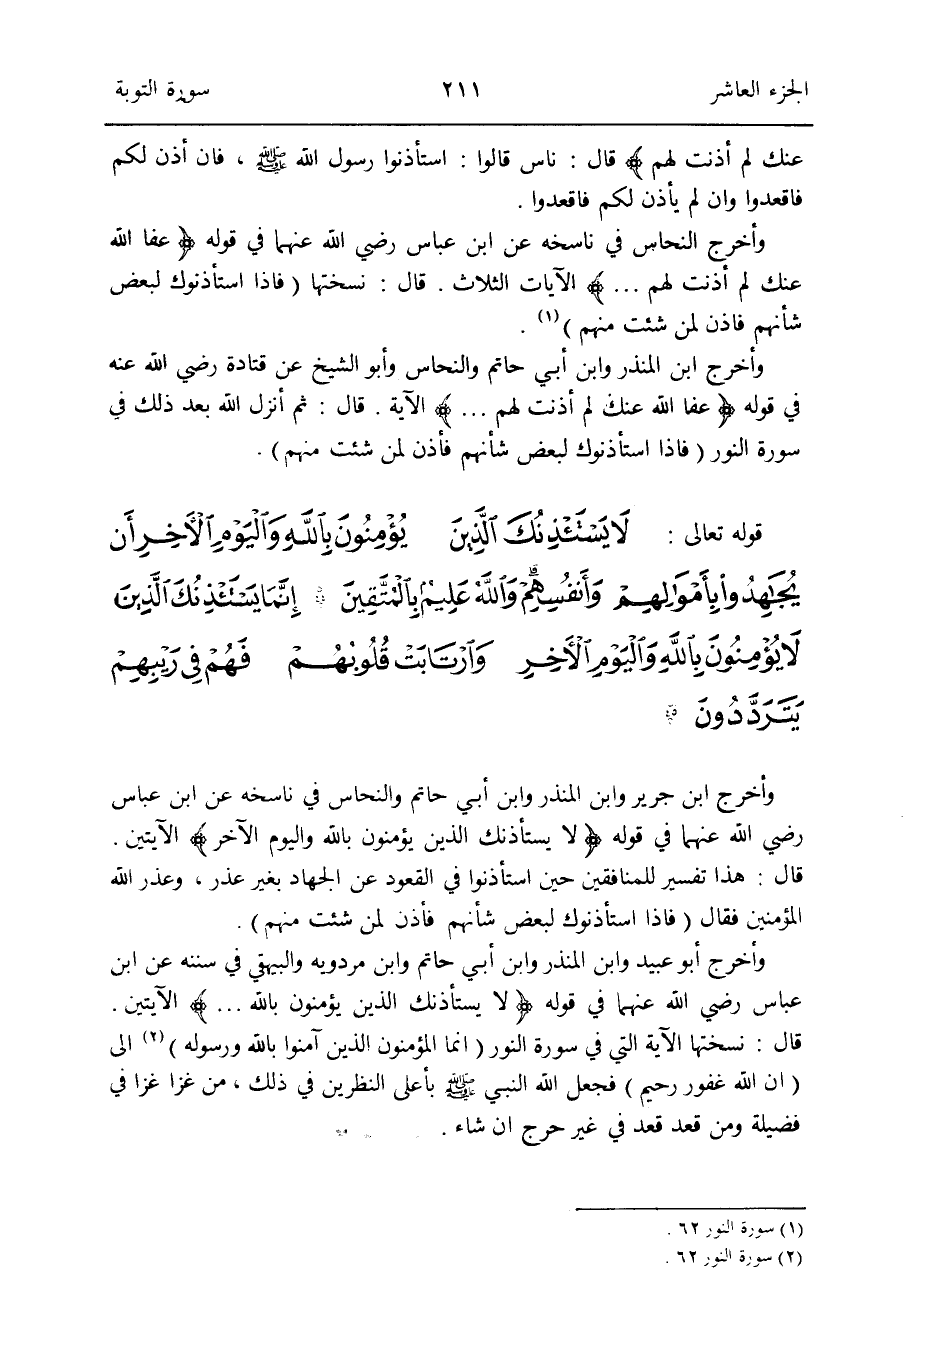 الجزء العاشر ٢١١ سورة التوبة
عنك لم أذنت لهم ﴾ قال : ناس قالوا : استأذنوا رسول الله ﷺ ، فان أذن لكم
فاقعدوا وان لم يأذن لكم فاقعدوا .
وأخرج النحاس في ناسخه عن ابن عباس رضي الله عنهما في قوله ﴿ عفا الله
عنك لم أذنت لهم ... ﴾ الآيات الثلاث . قال : نسختها ( فاذا استأذنوك لبعض
شأنهم فاذن لمن شئت منهم )(١) .
وأخرج ابن المنذر وابن أبي حاتم والنحاس وأبو الشيخ عن قتادة رضي الله عنه
في قوله ﴿ عفا الله عنك لم أذنت لهم ... ﴾ الآية . قال : ثم أنزل الله بعد ذلك في
سورة النور ( فاذا استأذنوك لبعض شأنهم فأذن لمن شئت منهم ) .
قوله تعالى : لَا يَسْتَـْٔذِنُكَ ٱلَّذِينَ يُؤْمِنُونَ بِٱللَّهِ وَٱلْيَوْمِ ٱلْأَخِرِ أَن
يُجَٰهِدُوا۟ بِأَمْوَٰلِهِمْ وَأَنفُسِهِمْ ۗ وَٱللَّهُ عَلِيمٌۢ بِٱلْمُتَّقِينَ ۞ إِنَّمَا يَسْتَـْٔذِنُكَ ٱلَّذِينَ
لَا يُؤْمِنُونَ بِٱللَّهِ وَٱلْيَوْمِ ٱلْأَخِرِ وَٱرْتَابَتْ قُلُوبُهُمْ فَهُمْ فِى رَيْبِهِمْ
يَتَرَدَّدُونَ
وأخرج ابن جرير وابن المنذر وابن أبي حاتم والنحاس في ناسخه عن ابن عباس
رضي الله عنهما في قوله ﴿ لا يستأذنك الذين يؤمنون بالله واليوم الآخر ﴾ الآيتين .
قال : هذا تفسير للمنافقين حين استأذنوا في القعود عن الجهاد بغير عذر ، وعذر الله
المؤمنين فقال ( فاذا استأذنوك لبعض شأنهم فأذن لمن شئت منهم ) .
وأخرج أبو عبيد وابن المنذر وابن أبي حاتم وابن مردويه والبيهقي في سننه عن ابن
عباس رضي الله عنهما في قوله ﴿ لا يستأذنك الذين يؤمنون بالله ... ﴾ الآيتين .
قال : نسختها الآية التي في سورة النور ( انما المؤمنون الذين آمنوا بالله ورسوله )(٢) الى
( ان الله غفور رحيم ) فجعل الله النبي ﷺ بأعلى النظرين في ذلك ، من غزا غزا في
فضيلة ومن قعد قعد في غير حرج ان شاء .
(١) سورة النور ٦٢ .
(٢) سورة النور ٦٢ .